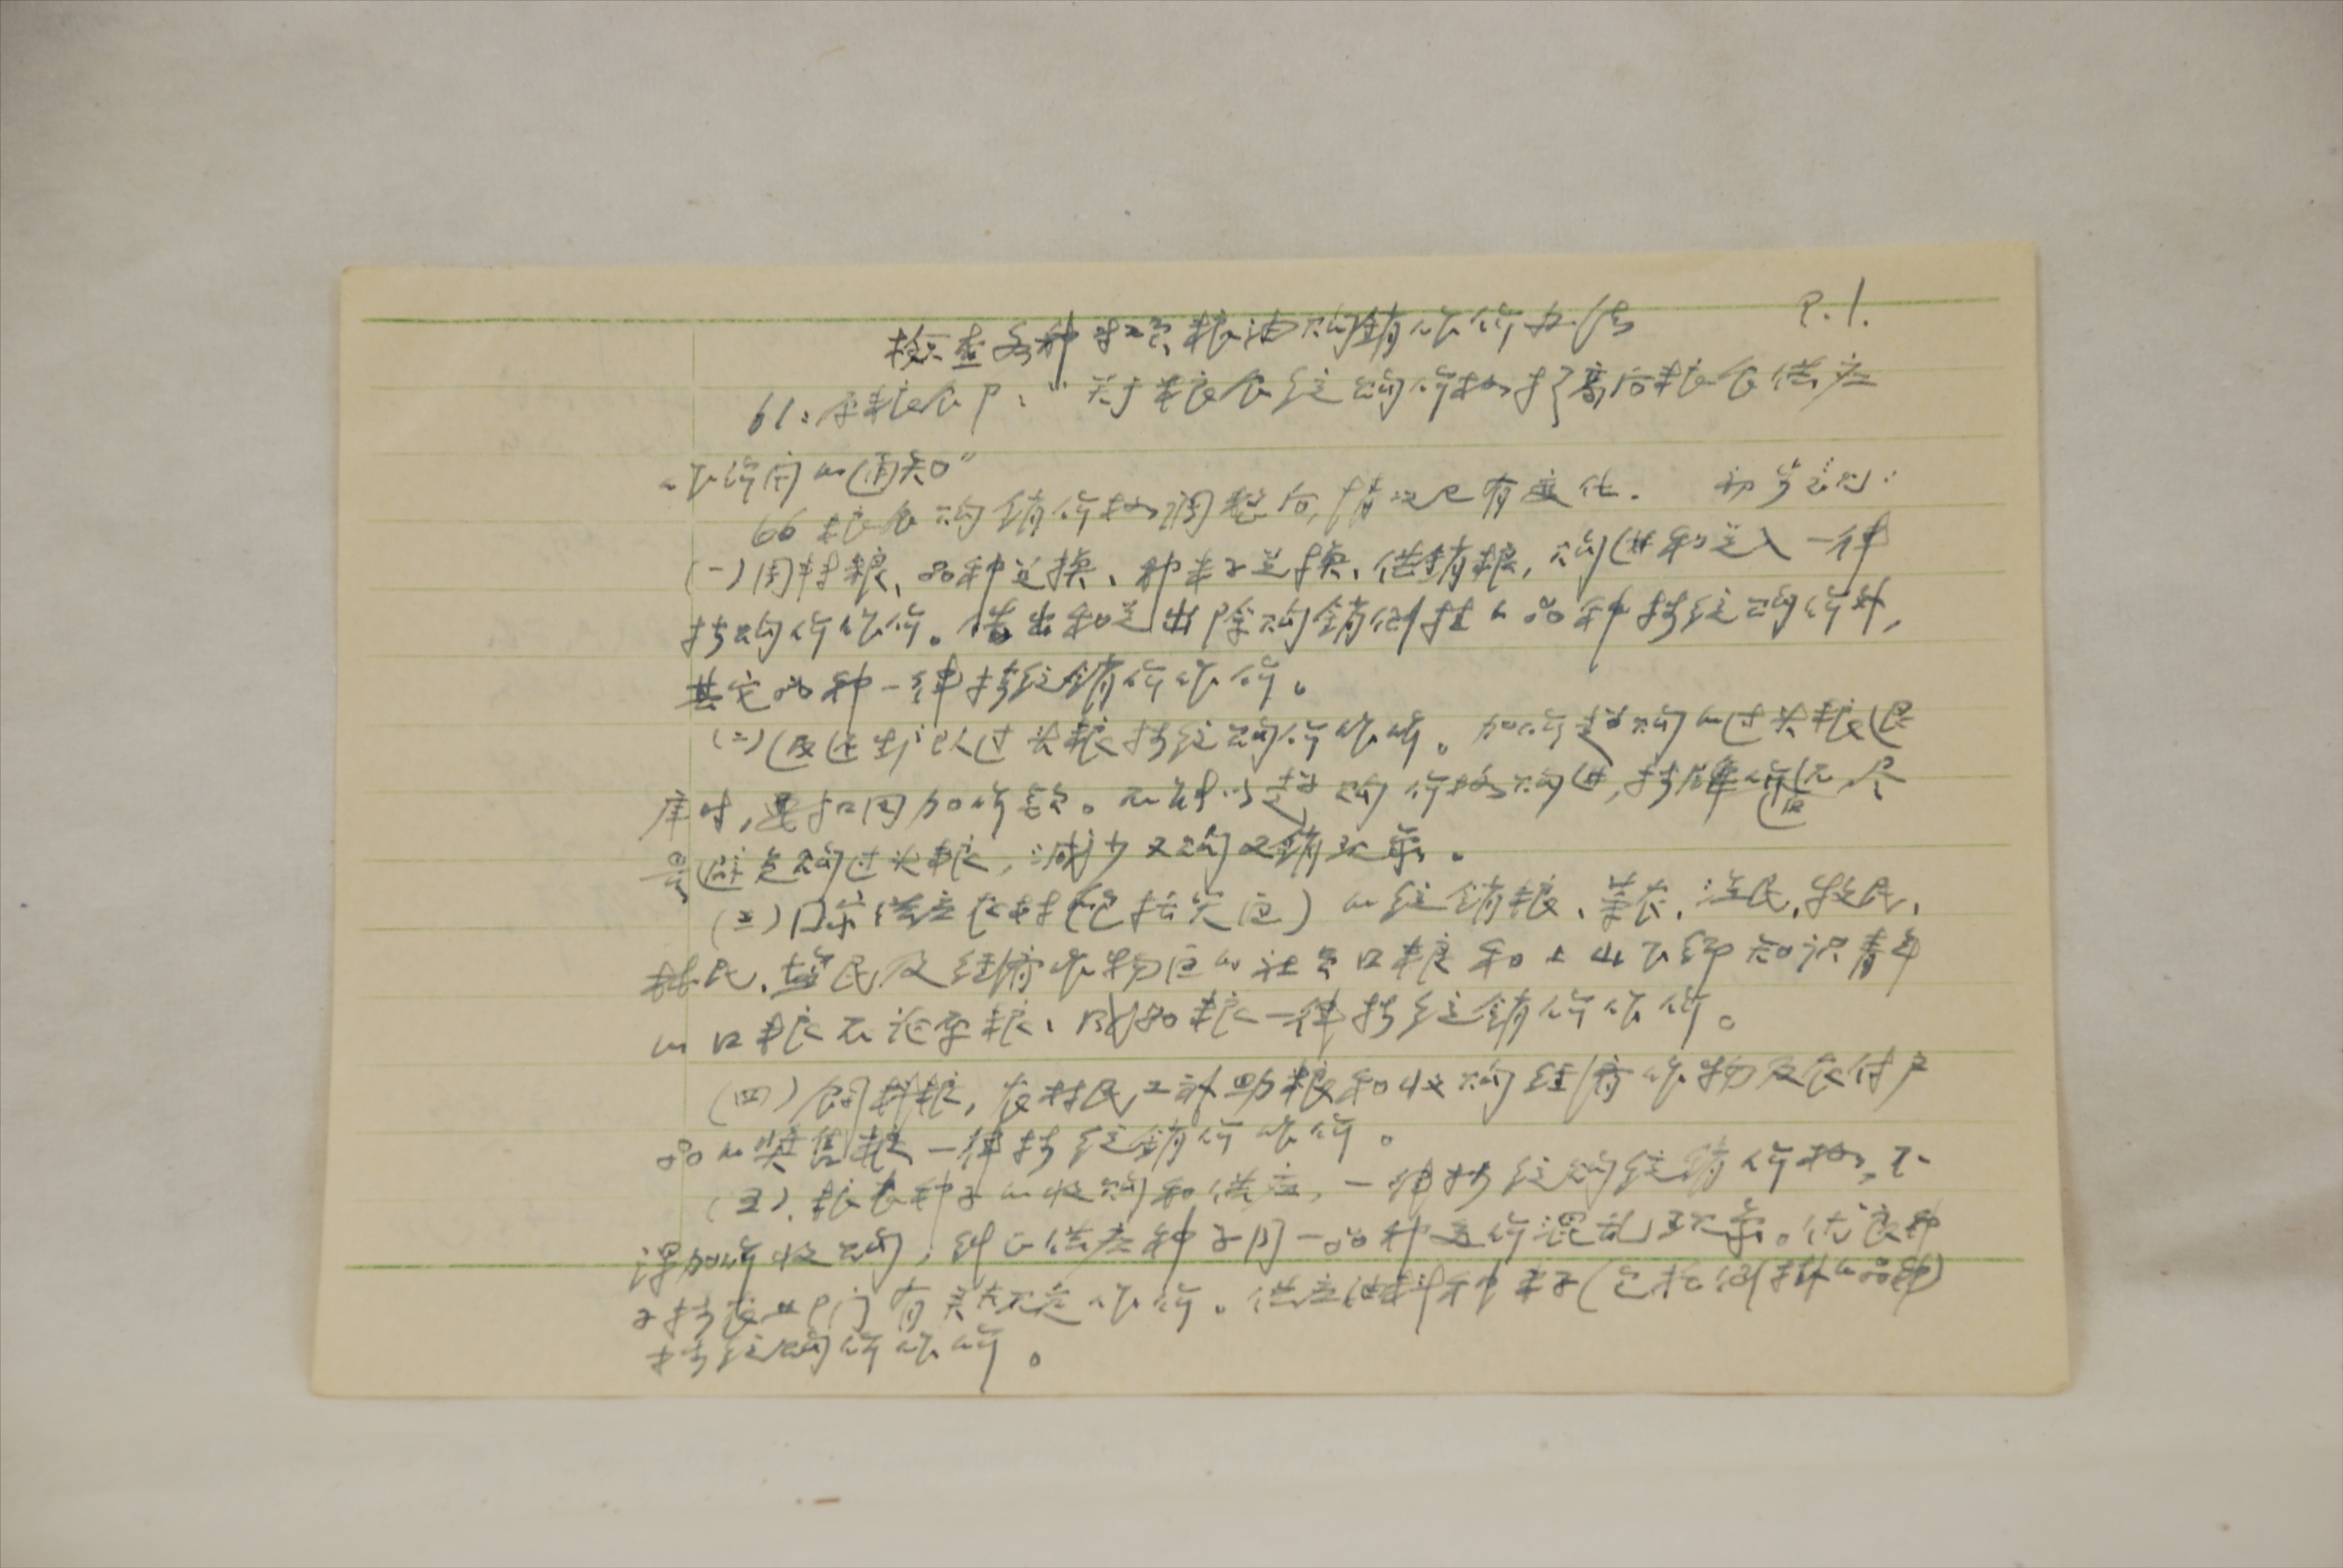 P.1.
检查各种专项粮油购销作价办法
61:原粮食卩:“关于粮食统购价格提高后粮食供应
作价问的通知”
66粮食购销价格调整后,情况已有变化. 初步意见:
(一)周转粮、品种兑换、种子兑换、供销粮,购进和兑入一律
按购价作价。借出和兑出除购销倒挂的品种按统购价外,
其它品种一律按统销价作价。
(二)返还生产队过头粮按统购价作价。加价超购的过头粮退
库时,要扣回加价款。不能以超购价格购进,按牌价返,尽
量避免购过头粮,减少又购又销现象。
(三)国家供应农村(包括灾区)的统销粮、菜农、渔民、牧民、
林民、盐民及经济作物区的社员口粮和上山下乡知识青年
的口粮不论原粮、成品粮一律按统销价作价。
(四)饲料粮,农村民工补助粮和收购经济作物及农付产
品的奖售粮一律按统销价作价。
(五)、粮食种子的收购和供应,一律按统购统销价格,不
得加价收购,纠正供应种子同一品种多价混乱现象。优良种
子按农业卩门有关规定作价。供应油料种子(包括倒挂的品种)
按统购价作价。